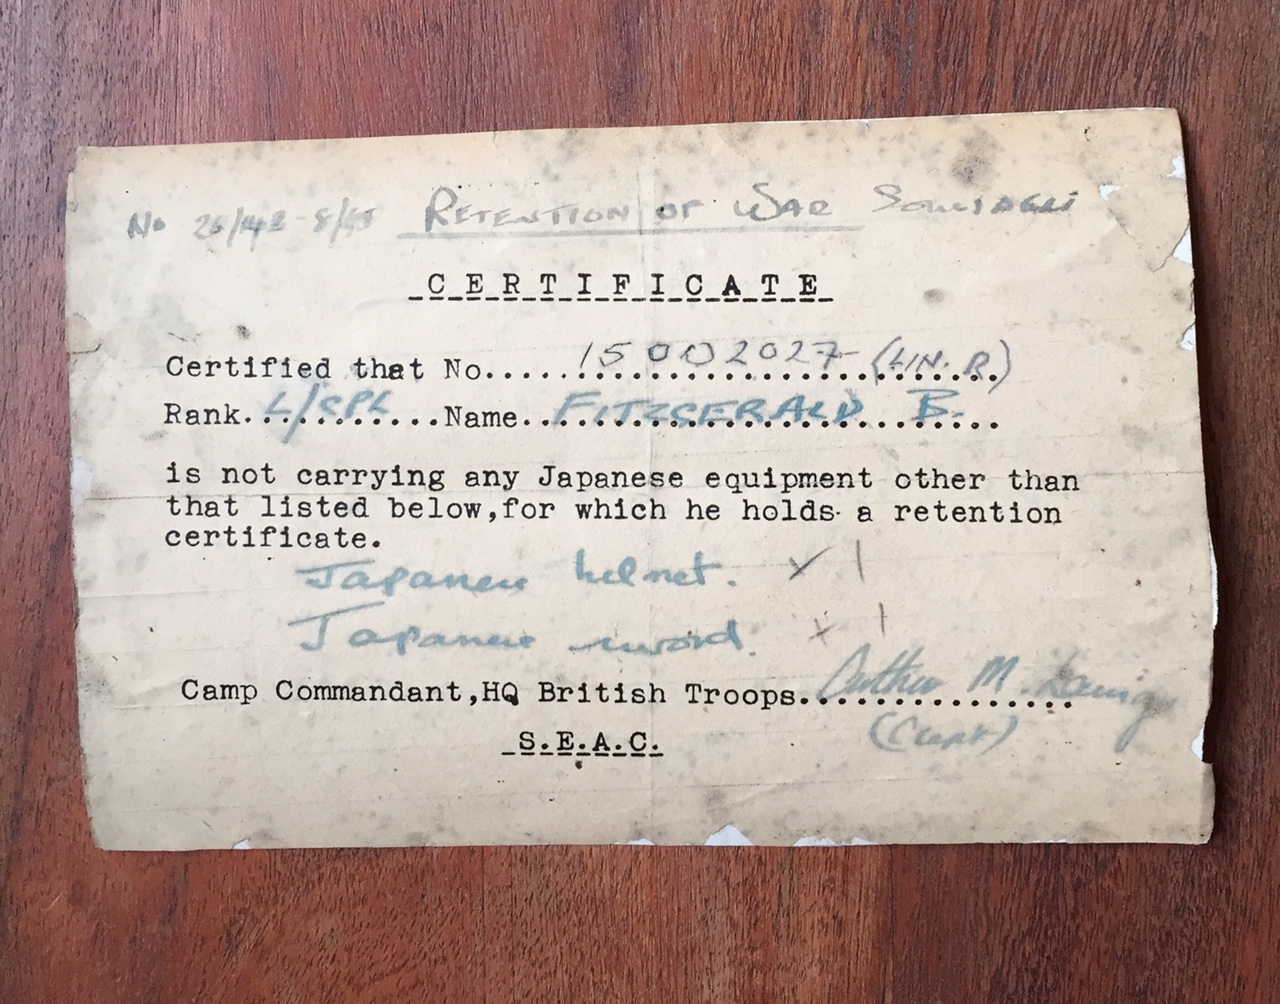 No RETENTION OF WAR
CERTIFICATE
Certified that No............15002027 (LIN. R.)
Rank. L/CPL ....Name.. FITZGERALD B. ..
is not carrying any Japanese equipment other than
that listed below,for which he holds a retention
certificate.
Japanese helmet. x 1
Japanese sword. x 1
Camp Commandant,HQ British Troops. Arthur M.
S.E.A.C.